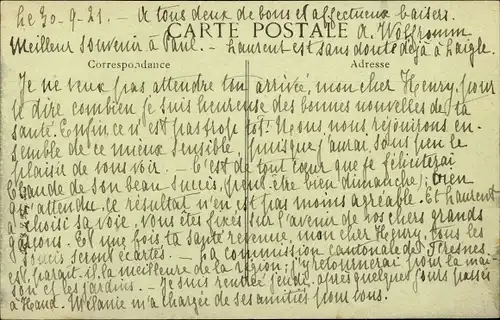 Le 30-9-21. — A tous deux de bons et affectueux baisers.
CARTE POSTALE A. Wolfromm
Meilleur souvenir à Paul. — Laurent est sans doute déjà à Laigle.
Correspondance Adresse
Je ne veux pas attendre ton arrivée, mon cher Henry, pour
te dire combien je suis heureuse des bonnes nouvelles de ta
santé. Enfin ce n'est pas trop tôt! Nous nous réjouirons en-
semble de ce mieux sensible, puisque j'aurai sous peu le
plaisir de vous voir. — C'est de tout cœur que je féliciterai
Claude de son beau succès, (peut-être bien dimanche); bien
qu'attendu, ce résultat n'en est pas moins agréable. Et Laurent
a choisi sa voie, vous êtes fixés sur l'avenir de vos chers grands
garçons. Et une fois ta santé revenue, mon cher Henry, tous les
soucis seront écartés. — La commission cantonale de Fresnes
est, paraît-il, la meilleure de la région; j'y retournerai pour la mai-
son et les jardins. — Je suis rentrée jeudi, après quelques jours passés
à Hand. Mélanie m'a chargée de ses amitiés pour vous.